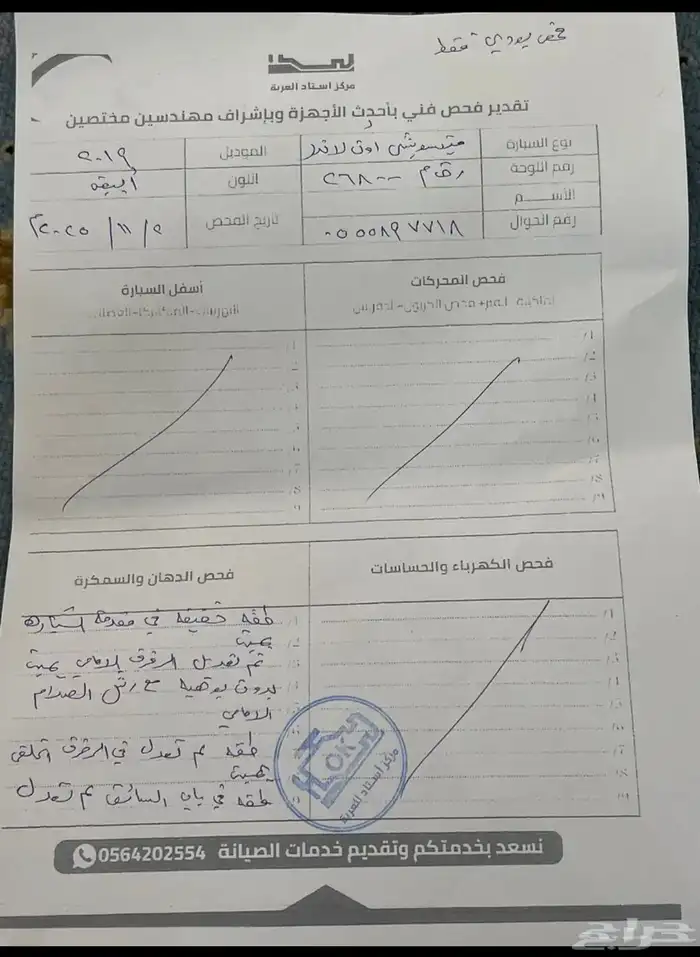 فحص بودي فقط
مركز استاد العربة
تقدير فحص فني بأحدث الأجهزة وبإشراف مهندسين مختصين
نوع السيارة متسوبيشي اوت لاندر الموديل ٢٠١٩
رقم اللوحة رقم ٢٦٨٠٠ اللون أبيض
الأســـم
رقم الجوال ٠٥٥٥٨٩٧٧١٨ تاريخ الفحص ٢ / ١١ / ٢٠٢٥م
فحص المحركات
أسفل السيارة
/1
/2
/3
/4
/5
/6
/7
/8
/9
فحص الكهرباء والحساسات
فحص الدهان والسمكرة
طقه خفيفه في مقدمة السياره
يمين
تم تعديل الرفرف الامامي يمين
بدون بوهيه مع رش الصدام
الامامي
طقه تم تعدل في الرفرف الخلفي
يمين
طقه في باب السائق تم تعدل
OK
مركز استاد العربة
نسعد بخدمتكم وتقديم خدمات الصيانة 0564202554
حراج